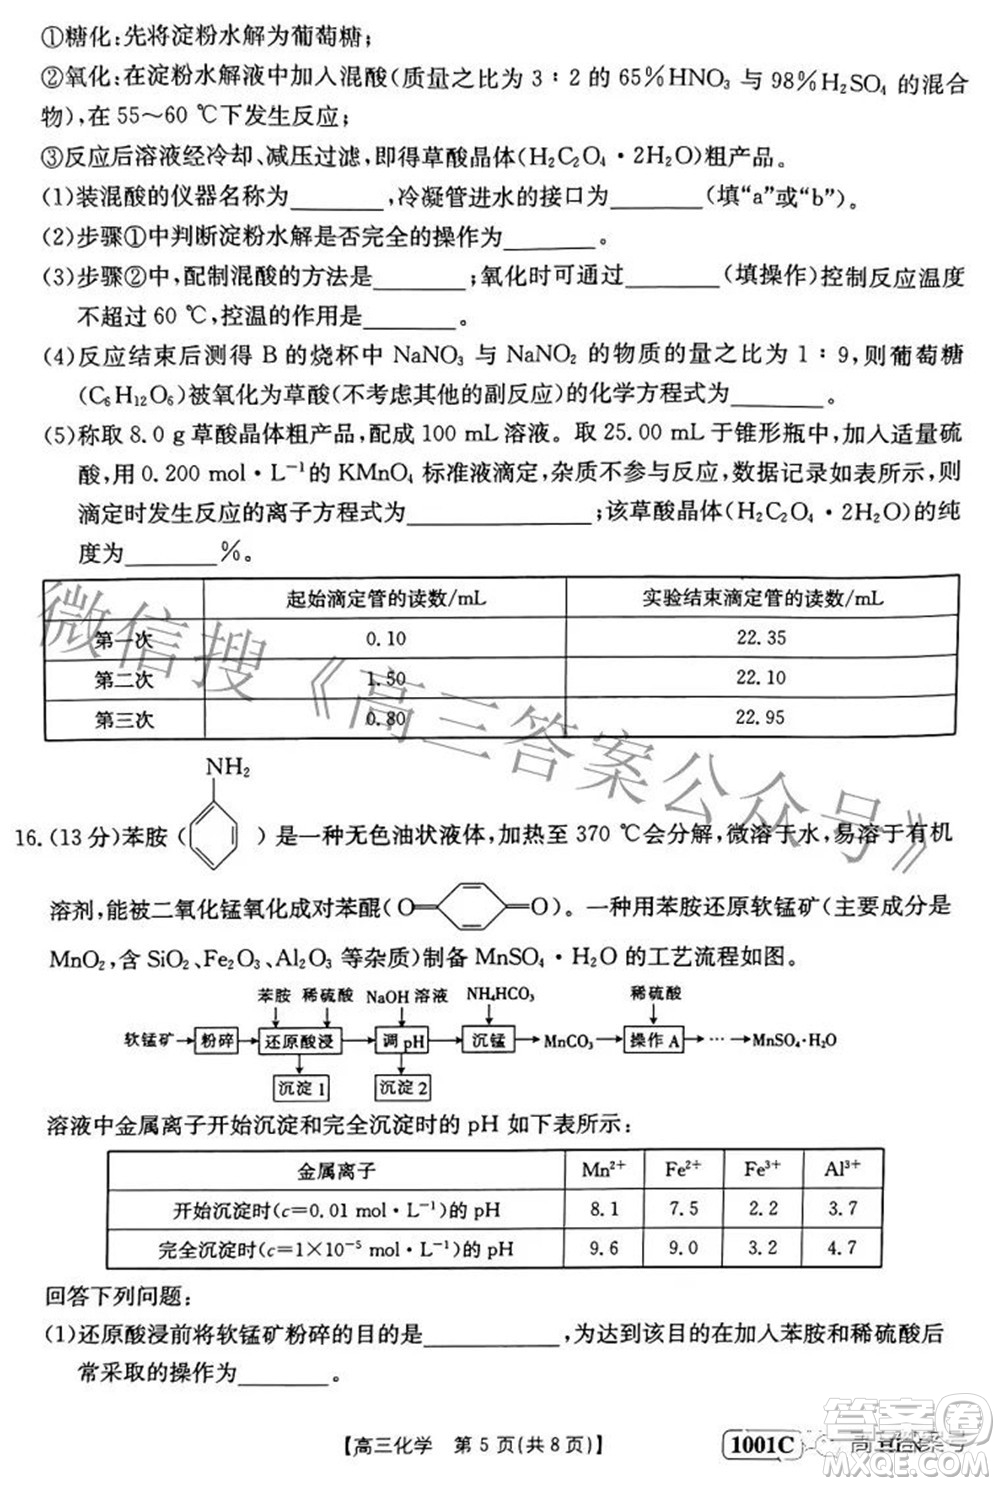 ①糖化:先将淀粉水解为葡萄糖;
②氧化:在淀粉水解液中加入混酸(质量之比为3∶2的65%HNO₃与98%H₂SO₄的混合
物),在55～60 ℃下发生反应;
③反应后溶液经冷却、减压过滤,即得草酸晶体(H₂C₂O₄·2H₂O)粗产品。
(1)装混酸的仪器名称为________,冷凝管进水的接口为________(填“a”或“b”)。
(2)步骤①中判断淀粉水解是否完全的操作为________。
(3)步骤②中,配制混酸的方法是________;氧化时可通过________(填操作)控制反应温度
不超过60 ℃,控温的作用是________。
(4)反应结束后测得B的烧杯中NaNO₃与NaNO₂的物质的量之比为1∶9,则葡萄糖
(C₆H₁₂O₆)被氧化为草酸(不考虑其他的副反应)的化学方程式为________。
(5)称取8.0 g草酸晶体粗产品,配成100 mL溶液。取25.00 mL于锥形瓶中,加入适量硫
酸,用0.200 mol·L⁻¹的KMnO₄标准液滴定,杂质不参与反应,数据记录如表所示,则
滴定时发生反应的离子方程式为________________;该草酸晶体(H₂C₂O₄·2H₂O)的纯
度为________%。
起始滴定管的读数/mL 实验结束滴定管的读数/mL
第一次 0.10 22.35
第二次 1.50 22.10
第三次 0.80 22.95
微信搜《高三答案公众号》
NH₂
16.(13分)苯胺( )是一种无色油状液体,加热至370 ℃会分解,微溶于水,易溶于有机
溶剂,能被二氧化锰氧化成对苯醌(O= =O)。一种用苯胺还原软锰矿(主要成分是
MnO₂,含SiO₂、Fe₂O₃、Al₂O₃等杂质)制备MnSO₄·H₂O的工艺流程如图。
苯胺 稀硫酸 NaOH溶液 NH₄HCO₃ 稀硫酸
软锰矿→粉碎→还原酸浸→调pH→沉锰→MnCO₃→操作A→…→MnSO₄·H₂O
沉淀1 沉淀2
溶液中金属离子开始沉淀和完全沉淀时的pH如下表所示:
金属离子 Mn²⁺ Fe²⁺ Fe³⁺ Al³⁺
开始沉淀时(c=0.01 mol·L⁻¹)的pH 8.1 7.5 2.2 3.7
完全沉淀时(c=1×10⁻⁵ mol·L⁻¹)的pH 9.6 9.0 3.2 4.7
回答下列问题:
(1)还原酸浸前将软锰矿粉碎的目的是____________,为达到该目的在加入苯胺和稀硫酸后
常采取的操作为________。
【高三化学 第5页(共8页)】
1001C
答案卷
MXQE.COM